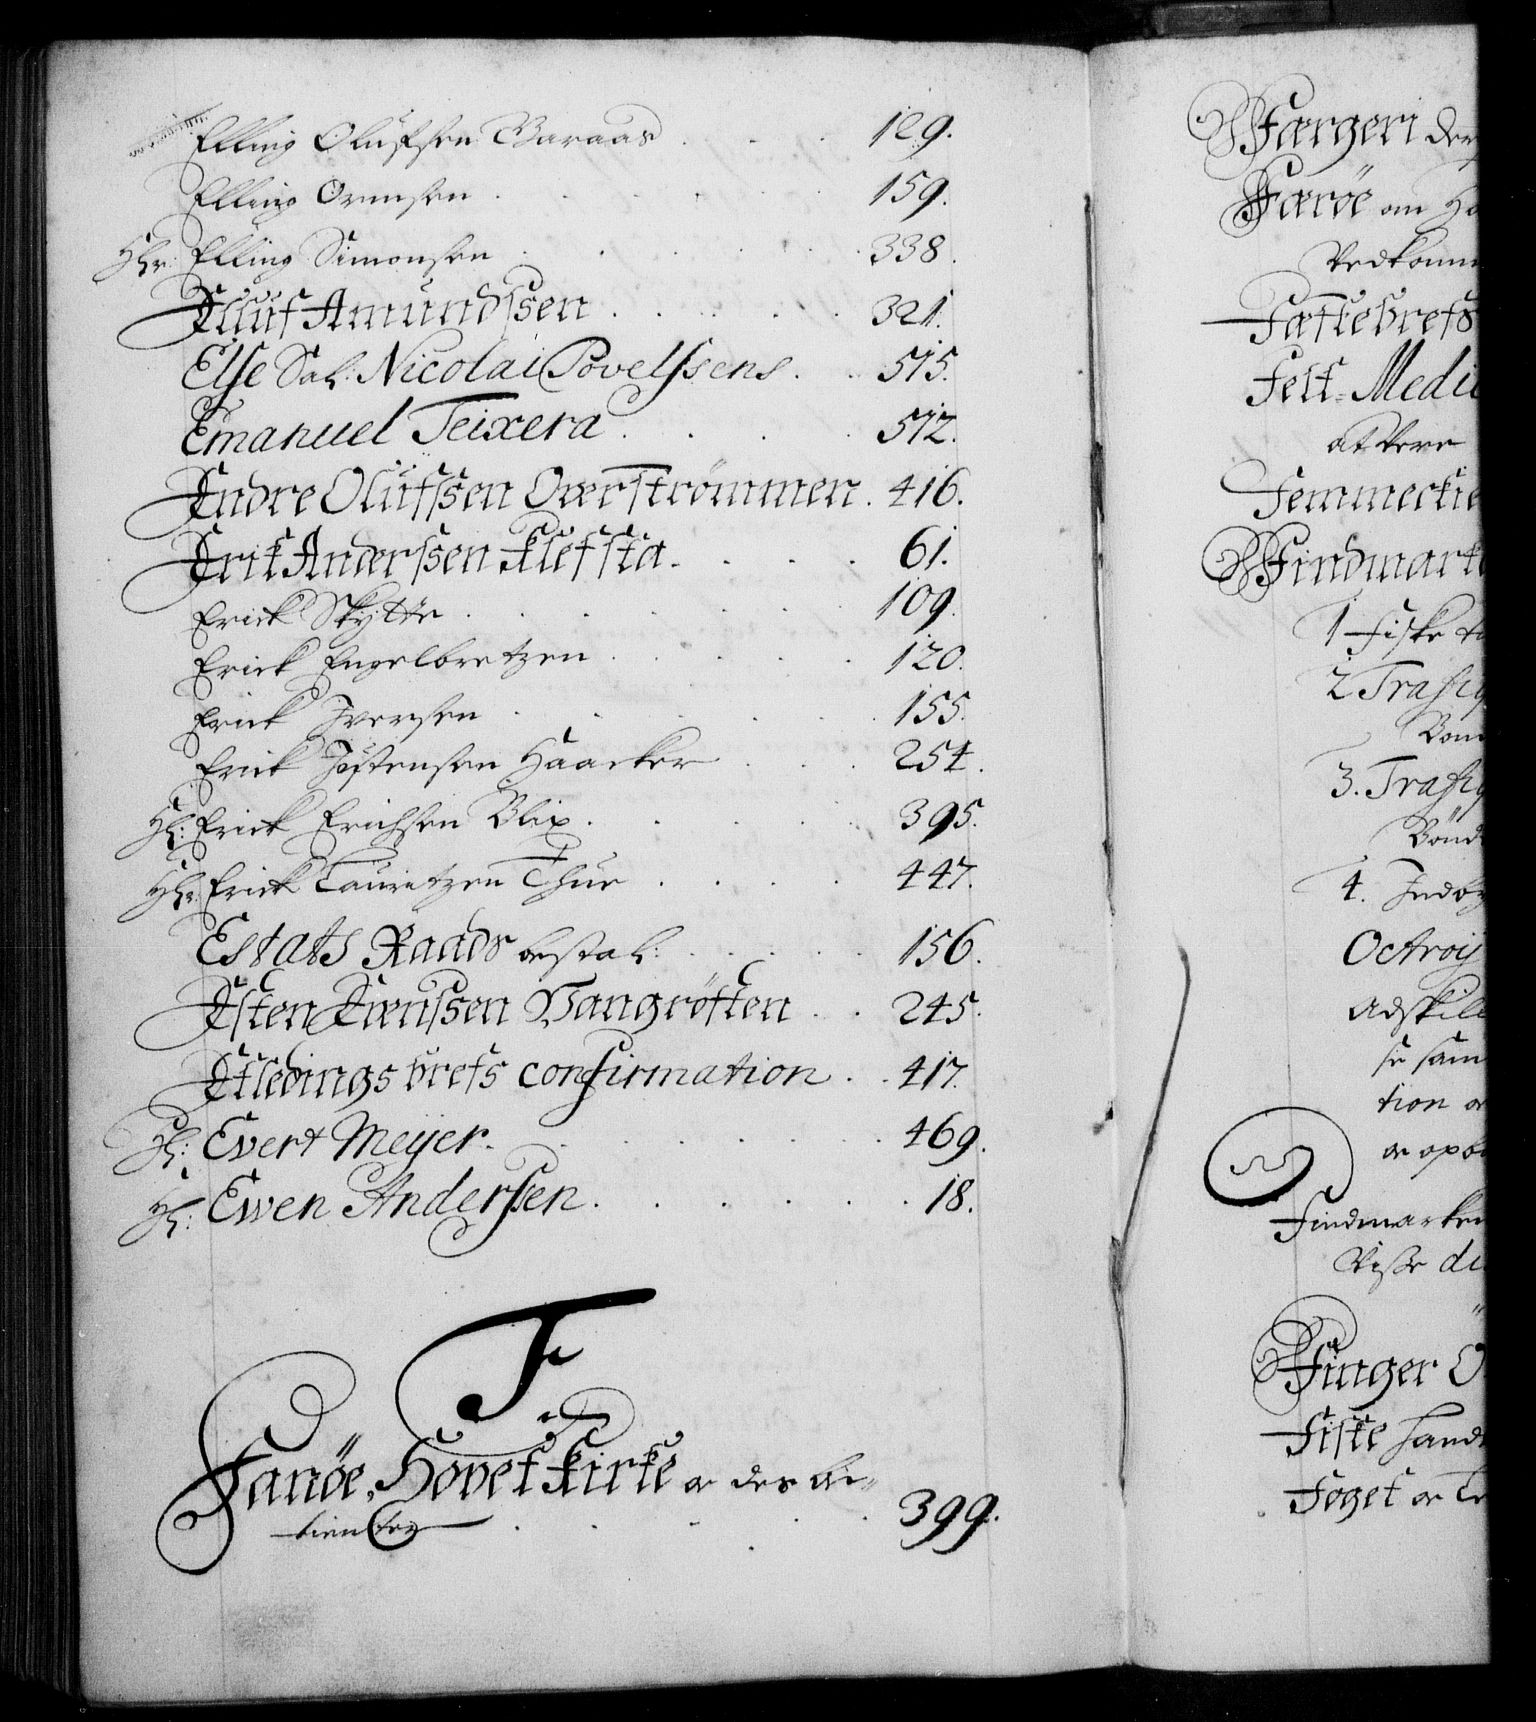 Elling Olufsen Varaas . . . 129.
Elling Ormsen . . . . . . 159.
Hr: Elling Simonsen . . . . . . 338.
Elluf Amundssen . . . . . 321.
Else Sal: Nicolai Povelssens . . 515.
Emanuel Teixera . . . . 512.
Endre Olufssen Overströmmen . 416.
Erik Anderssen Klefsta . . . . 61.
Erick Skytte . . . . . . 109.
Erick Engelbretzen . . . . . 120.
Erick Iversen . . . . . . 155.
Erick Jostensen Haacker . . . 254.
Hr: Erick Erichsen Blix . . . . . 395.
Hr: Erick Lauritzen Thue . . . . 447.
Estats Raads bestal: . . . . . 156.
Esten Vangröften . . 245.
Efledings brefs confirmation . . 417.
Hr: Evert Meyer . . . . . . 469.
Hr: Ewen Anderssen . . . . . . 18.
F
Fanöe, Hovet Kirke
tienster . . . . . 399.
Færgeri
Færöe om
Vedkomm
Fættebrefs
Felt-Medi
at være
Femmeckie
Findmark
1 Fiske
2 Trafiq
Bøn
3. Trafiq
Bönd
4. Indby
Octroij
Adskill
se sam
tion
Findmarken
Visse di
Finger
Fiske hand
Foget